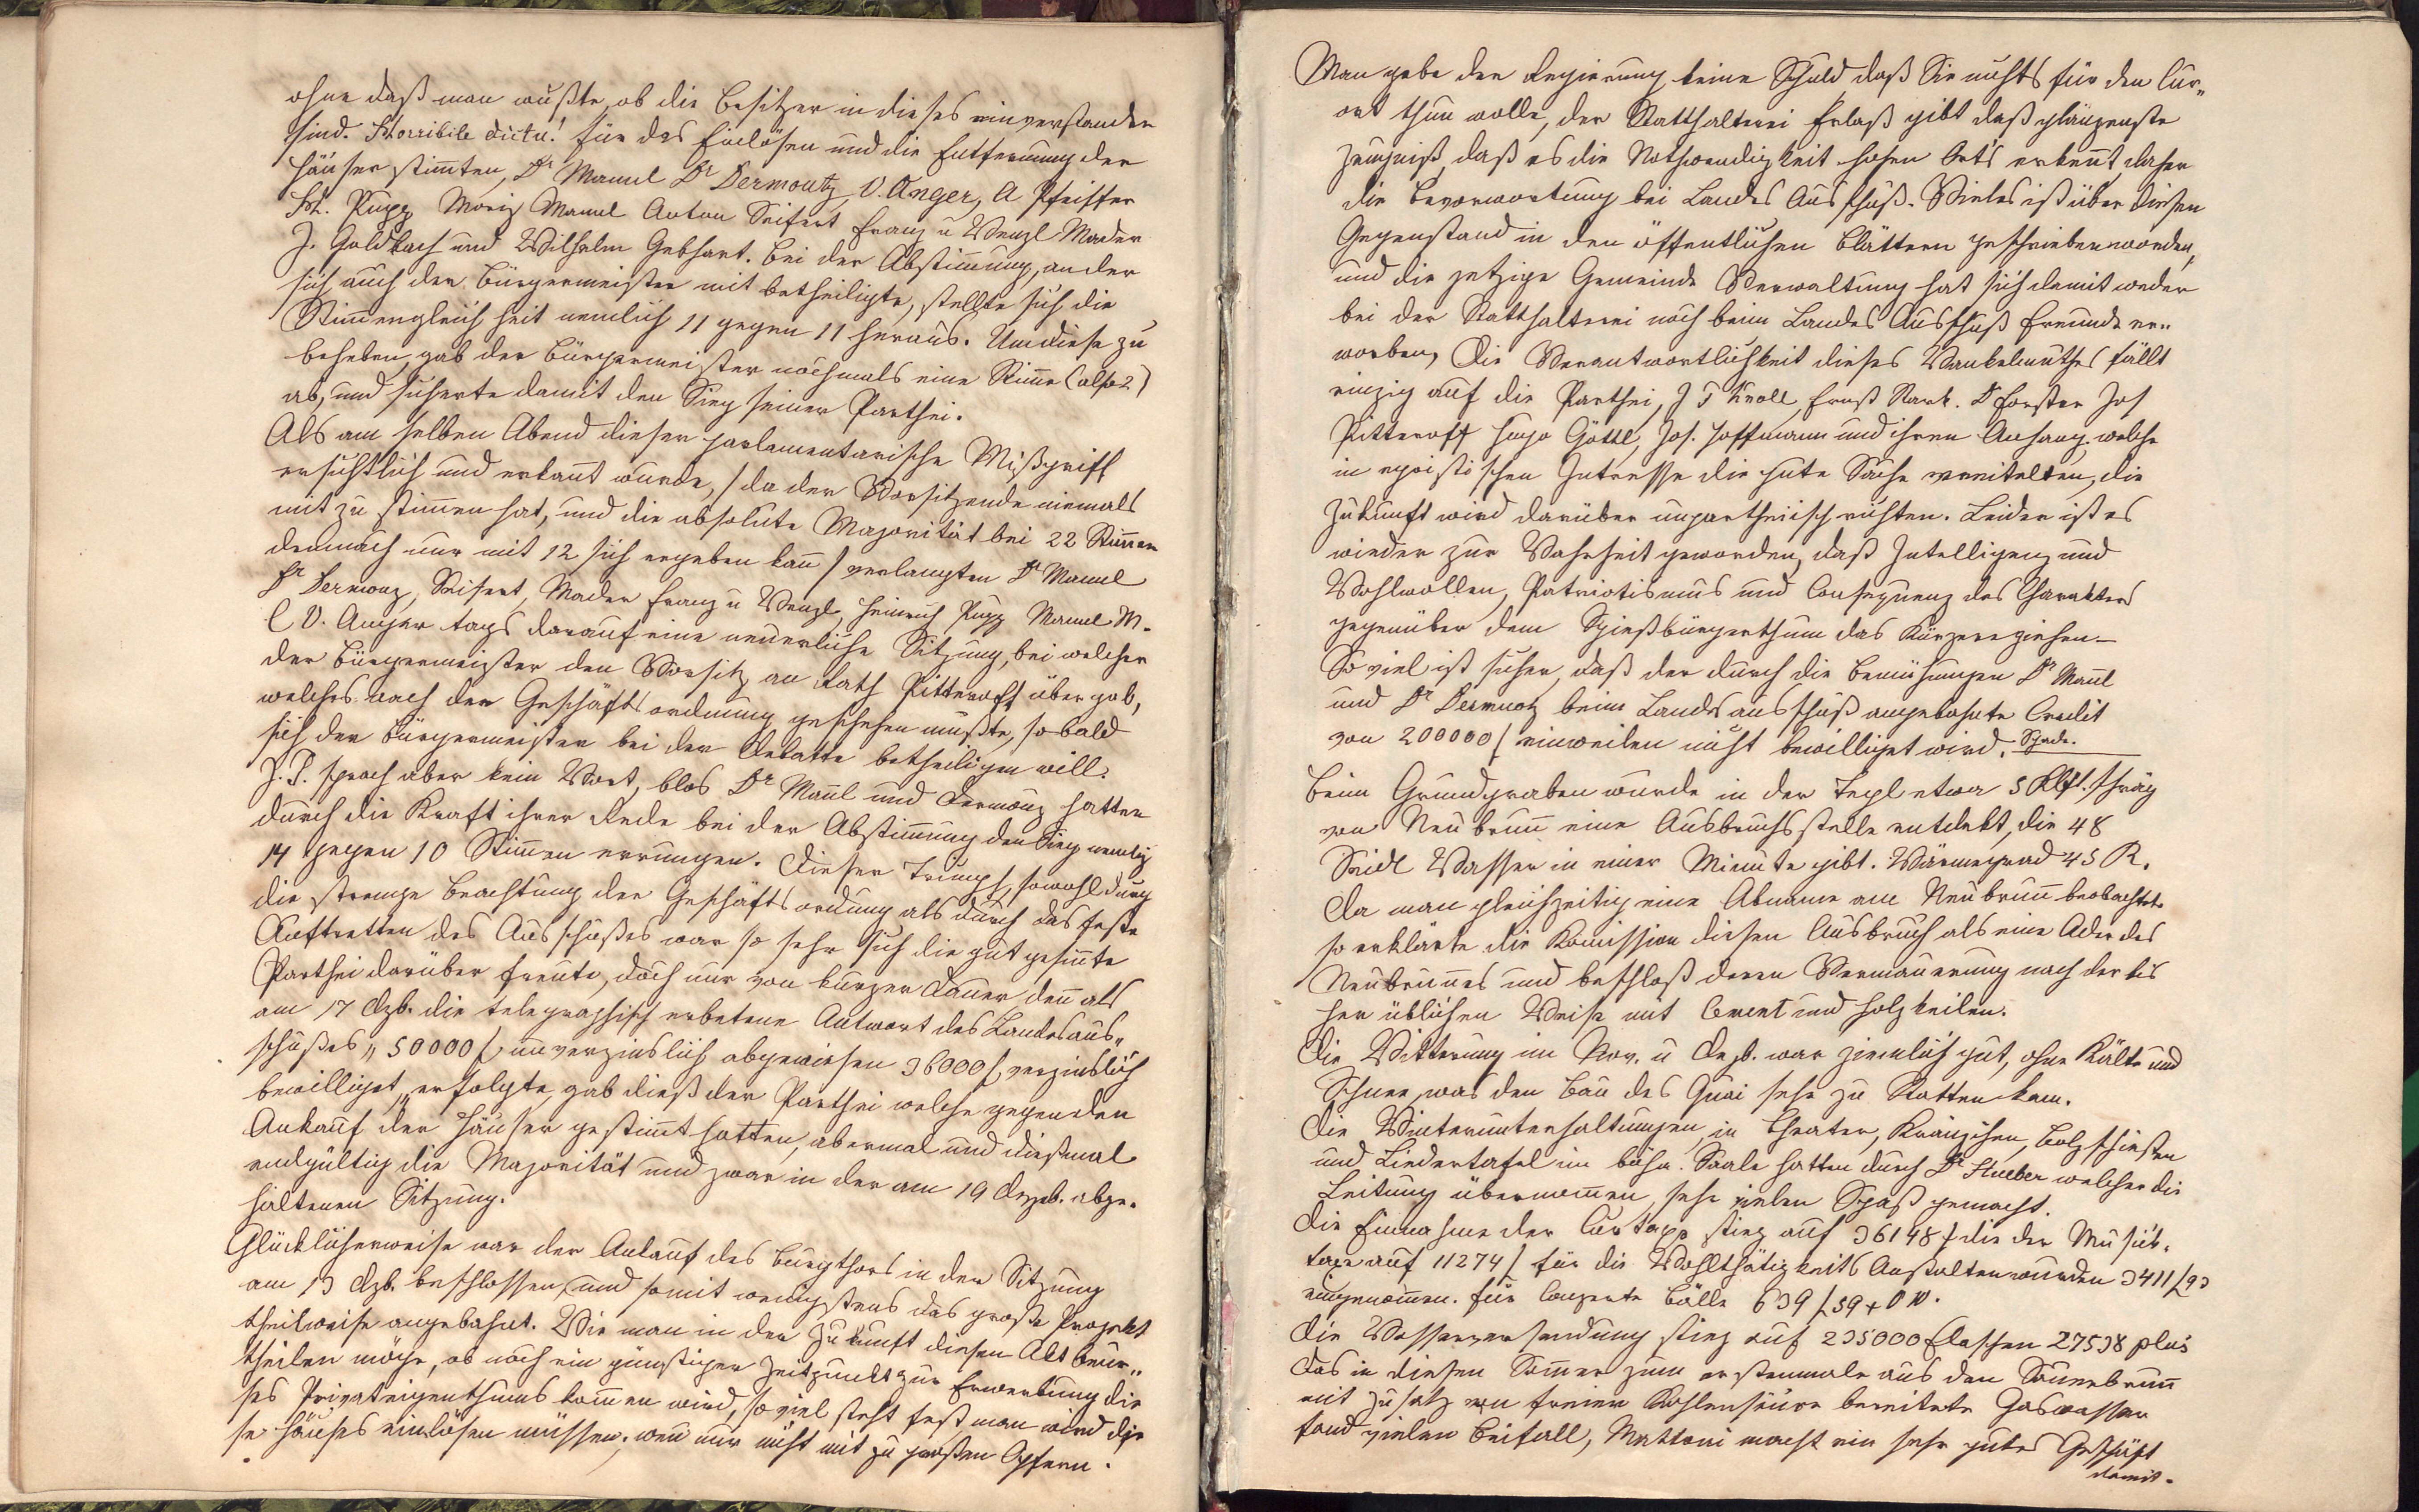 ohne daß man wußte, ob die Besitzer in dieses einverstanden
sind. Horribile dictu! für das Einlösen und die Entfernung der
Häuser stimten, Dr Mannl Dr Dermoutz V. Anger, A Pfeiffer
H. Pupp Moriz Mannl Anton Seifert Franz u Wenzl Mader
J. Goldbach und Wilhelm Gebhart. Bei der Abstimung, an der
sich auch der Bürgermeister mit betheiligte, stellte sich die
Stimengleichheit nemlich 11 gegen 11 heraus. Um diese zu
beheben, gab der Bürgermeister nochmals eine Stime (also 2)
ab, und sicherte damit den Sieg seiner Parthei.
Als am selben Abend dieser parlamentarische Mißgriff
ersichtlich und erkant wurde, / da der Vorsitzende niemals
mit zu stimen hat, und die absolute Majorität bei 22 Stimen
demnach nur mit 12 sich ergeben kan / verlangten Dr Mannl
Dr Dermouz, Seifert, Mader Franz u Wenzl, Heinrich Pupp Mannl M.
C V. Anger tags darauf eine neuerliche Sitzung, bei welcher
der Bürgermeister den Vorsitz an Rath Pitteroff übergab,
welches nach der Geschäftsordnung geschehen mußte, so bald
sich der Bürgermeister bei der Debatte betheiligen will.
J. P. sprach aber kein Wort, blos Dr Manl und Dermouz hatten
durch die Kraft ihrer Rede bei der Abstimung den Sieg nemlich
14 gegen 10 Stimen errungen. Dieser Triumpf, sowohl durch
die strenge Beachtung der Geschäftsordung als durch das feste
Auftretten des Ausschußes war so sehr sich die gut gesinte
Parthei darüber freute, doch nur von kurzer Dauer den als
am 17 Dzb. die telegraphisch erbetene Antwort des Landesaus„
schußes „ 50000 f unverzinslich abgewiesen 36000 f verzinslich
bewilliget „ erfolgte, gab dieß der Parthei welche gegen den
Ankauf der Häuser gestimt hatten, abermal und dießmal
endgültig die Majorität und zwar in der am 19 Dezeb. abge„
haltenen Sitzung.
Glücklicherweise war der Ankauf des Burgthors in der Sitzung
am 13 Dzb. beschlossen, und somit wenigstens das große Projekt
theilweise angebahnt. Wie man in der Zukunft diesen Akt beur„
theilen möge, ob noch ein günstiger Zeitpunkt zur Erwerbung die
ses Privateigenthums komen wird, so viel steht fest man wird die
se Häuser einlösen müssen, wen nur nicht mit zu großen Opfern.
Man gebe der Regierung keine Schuld daß Sie nichts für den Cur„
ort thun wolle, der Statthalterei Erlaß gibt daß glänzenste
Zeugniß, daß es die Nothwendigkeit hohen Orts erkent, daher
die Bevorwortung bei Landes Ausschuß. Vieles ist über diesen
Gegenstand in den öffentlichen Blättern geschrieben worden,
und die jetzige Gemeinde Verwaltung hat sich damit weder
bei der Statthalterei noch beim Landes Ausschuß Freunde er„
worben, Die Verantwortlichkeit dieses Wankelmuthes fällt
einzig auf die Parthei, J P Knoll, Ernst Stark. D Forster Jos
Pitteroff Hugo Göttl, Jos. Hoffmann und ihren Anhang welche
in egoistischen Intresse die gute Sache vereitelten, die
Zukunft wird darüber unpartheiisch richten. Leider ist es
wieder zur Wahrheit geworden, daß Intelligenz und
Wohlwollen, Patriotismus und Consequenz des Charakters
gegenüber dem Spießbürgerthum das Kürzere ziehen —
So viel ist sicher, daß der durch die Bemühungen Dr Manl
und Dr Dermuoz beim Landesausschuß angebahnte Credit
von 200000 f einweilen nicht bewilliget wird. Schade.
Beim Grundgraben wurde in der Tepl etwa 5 Klft. schräg
von Neubrun eine Ausbruchsstelle entdekt, die 48
Seidl Wasser in einer Minute gibt. Wärmegrad 45 R.
Da man gleichzeitig eine Abname am Neubrun beobachtete
so erklärte die Komission diesen Ausbruch als eine Ader des
Neubrunes und beschloß deren Vermauerung nach der bis
her üblichen Weise mit Cement und Holzkeilen.
Die Witterung im Nov. u Dezb. war ziemlich gut, ohne Kälte und
Schnee, was den Bau des Quai sehr zu Statten kam.
Die Winterunterhaltungen, in Theater, Kränzchen, Bolzschießen
und Liedertafel im böhm. Saale hatten durch Dr Stueber welcher die
Leitung übernomen, sehr vielen Spaß gemacht.
Die Einnahme der Curtaxe stieg auf 36148 f die der Musik„
taxe auf 11274 f für die Wohlthätigkeits Anstalten wurden 3411 f 93
eingenomen. für Conzerte Bälle 639 f 59 x ÖW.
Die Wasserversendung stieg auf 235000 Flaschen 27538 plus
Das in diesen Somer zum erstenmale aus den Sauerbrun
mit Zusatz von freier Kohlensäure bereitete Gaswasser
fand vielen Beifall, Mattoni macht ein sehr gutes Geschäft
damit.